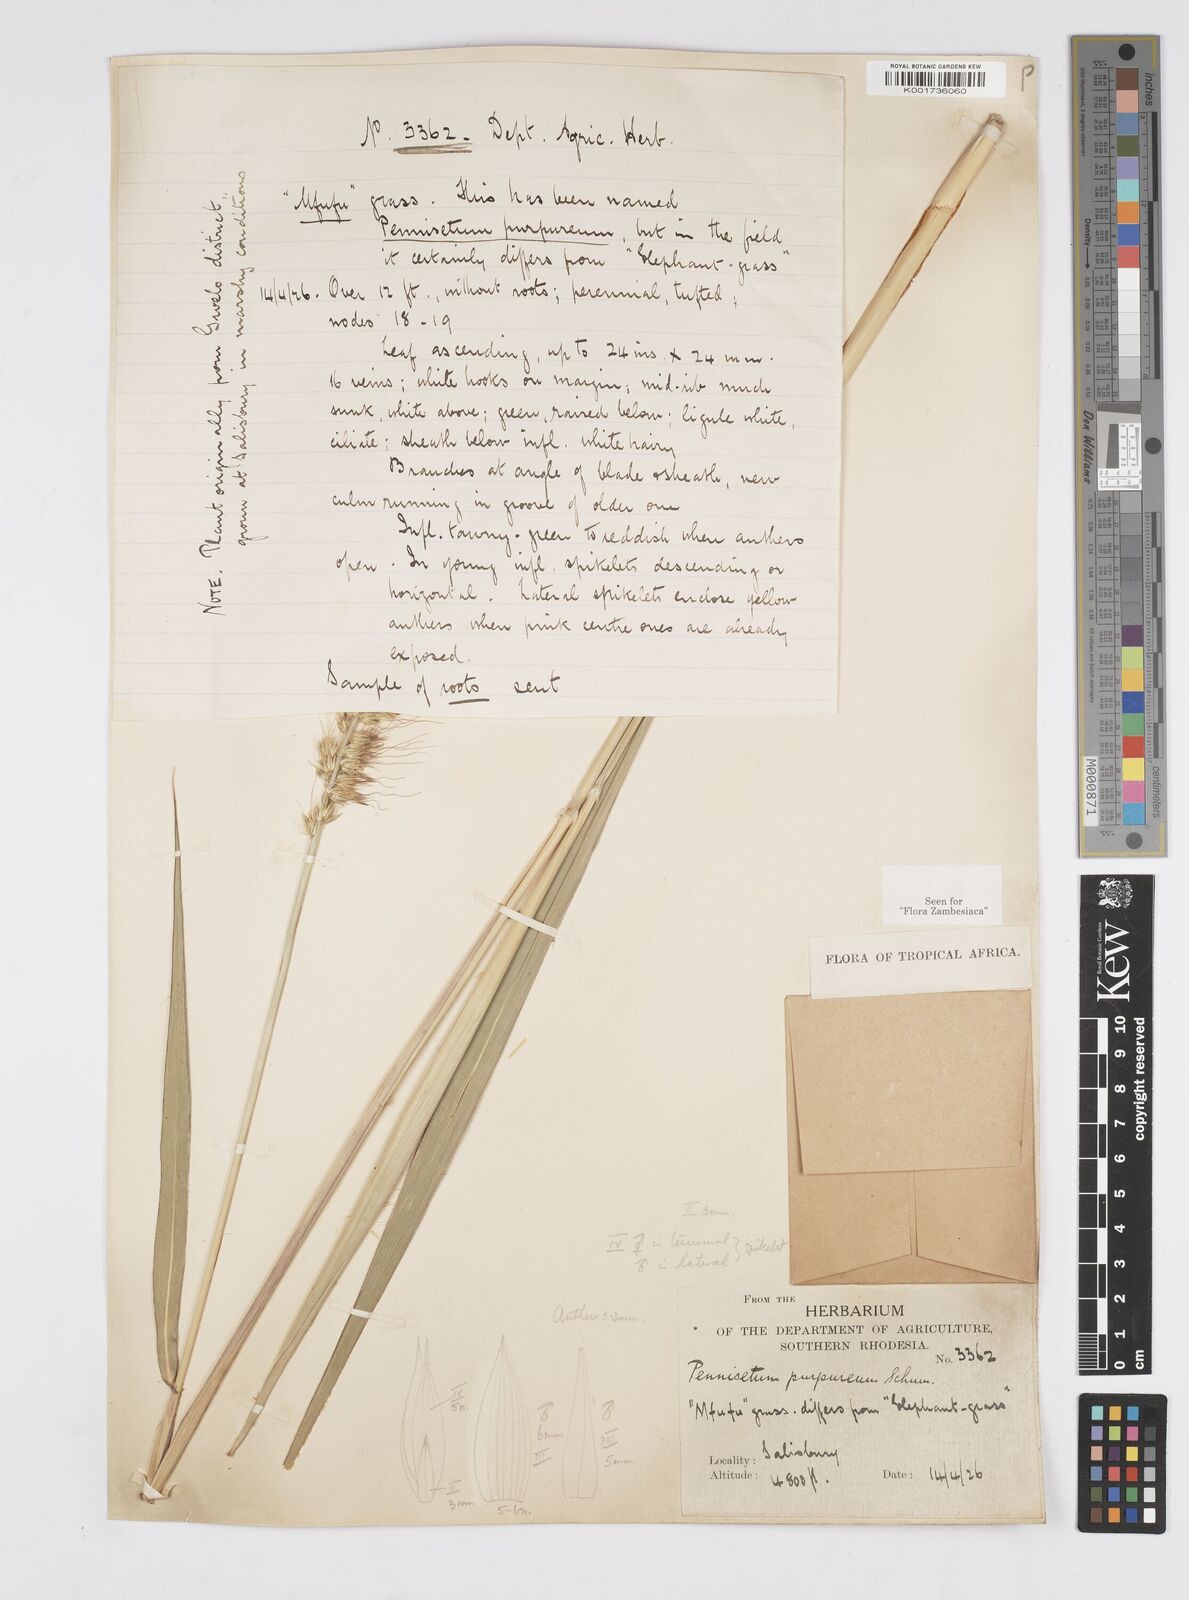 ROYAL BOTANIC GARDENS KEW
K001736060
P
No. 3362 - Dept. Agric. Herb.
"Mfufu" grass. This has been named
Pennisetum purpureum, but in the field
it certainly differs from "Elephant-grass"
14/4/26. Over 12 ft., without roots; perennial, tufted;
nodes 18-19
Leaf ascending, up to 24 ins. x 24 mm.
16 veins; white hooks on margin; mid-rib much
sunk, white above; green, raised below; ligule white,
ciliate; sheath below infl. white hairy
Branches at angle of blade & sheath, new
culm running in groove of older one
Infl. tawny-green to reddish when anthers
open. In young infl. spikelets descending or
horizontal. Lateral spikelets enclose yellow
anthers when pink centre ones are already
exposed.
Sample of roots sent
NOTE. Plant originally from Gwelo district.
grown at Salisbury in marshy conditions
Seen for
"Flora Zambesiaca"
FLORA OF TROPICAL AFRICA.
II 3mm.
IV ☿ in terminal } spikelet
♂ in lateral
Anthers 3.3mm.
IV
5n.
II
3mm
♂
6mm
III
5-6n.
♂
III
5mm.
FROM THE
HERBARIUM
OF THE DEPARTMENT OF AGRICULTURE,
SOUTHERN RHODESIA.
No. 3362
Pennisetum purpureum Schum.
"Mfufu" grass. differs from "Elephant-grass"
Locality: Salisbury
Altitude: 4800 ft.
Date: 14/4/26
inches
centimeters
Density
Don Williams
M000871
cm
Royal Botanic Gardens
Kew
0 1 2 3 4 5 6 7 8 9 10
copyright reserved